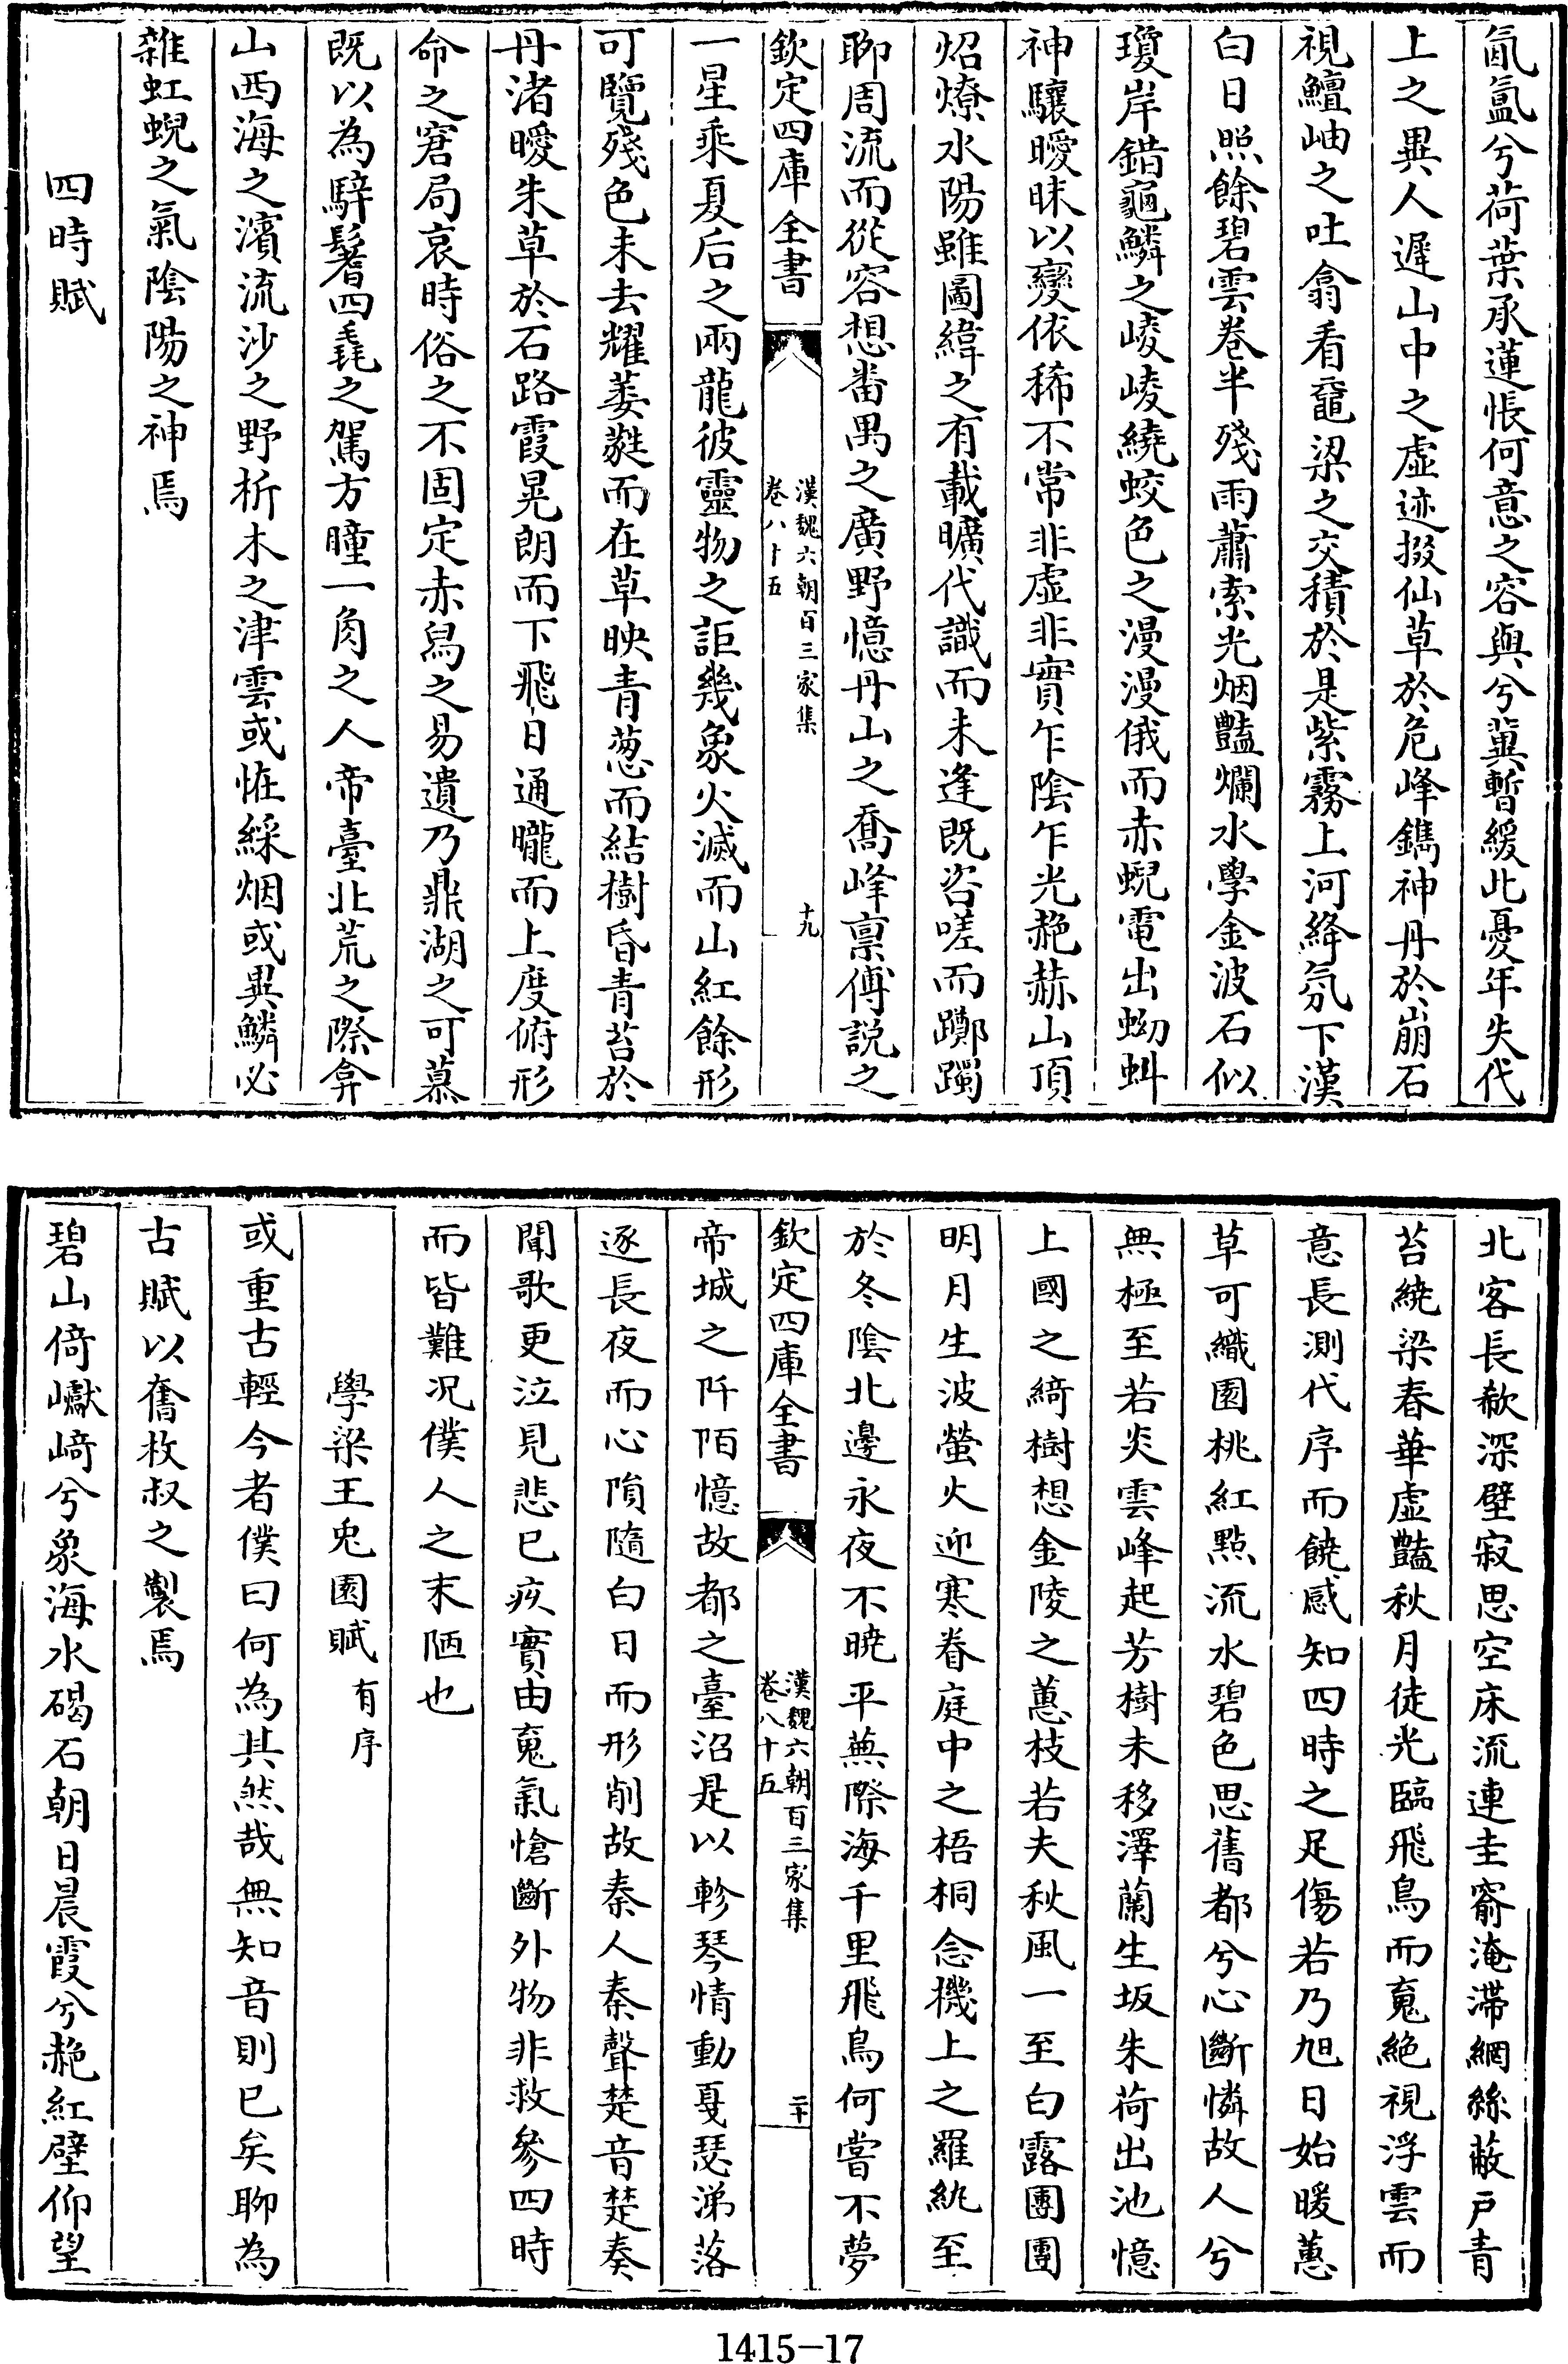 氤氳兮荷葉承蓮悵何意之容與兮冀暫緩此憂年失代
上之異人遲山中之虛迹掇仙草於危峰鐫神丹於崩石
視鱣岫之吐翕看黿梁之交積於是紫霧上河絳氛下漢
白日照餘碧雲卷半殘雨蕭索光烟豔爛水學金波石似
瓊岸錯龜鱗之崚崚繞蛟色之漫漫俄而赤蜺電出蚴虯
神驤曖昧以變依稀不常非虛非實乍陰乍光赩赫山頂
炤燎水陽雖圖緯之有載曠代識而未逢既咨嗟而躑躅
聊周流而從容想番禺之廣野憶丹山之喬峰禀傅說之
欽定四庫全書
漢魏六朝百三家集
卷八十五
十九
一星乘夏后之兩龍彼靈物之詎幾象火滅而山紅餘形
可覽殘色未去耀萎蕤而在草映青葱而結樹昏青苔於
丹渚曖朱草於石路霞晃朗而下飛日通曨而上度俯形
命之窘局哀時俗之不固定赤舄之易遺乃鼎湖之可慕
既以為騂鬐四毳之駕方瞳一角之人帝臺北荒之際弇
山西海之濱流沙之野析木之津雲或恠綵烟或異鱗必
雜虹蜺之氣陰陽之神焉
四時賦
北客長欷深壁寂思空床流連圭窬淹滯網絲蔽戶青
苔繞梁春華虛豔秋月徒光臨飛鳥而䰟絕視浮雲而
意長測代序而饒感知四時之足傷若乃旭日始暖蕙
草可織園桃紅點流水碧色思舊都兮心斷憐故人兮
無極至若炎雲峰起芳樹未移澤蘭生坂朱荷出池憶
上國之綺樹想金陵之蕙枝若夫秋風一至白露團團
明月生波螢火迎寒眷庭中之梧桐念機上之羅紈至
於冬陰北邊永夜不曉平蕪際海千里飛鳥何嘗不夢
欽定四庫全書
漢魏六朝百三家集
卷八十五
二十
帝城之阡陌憶故都之臺沼是以軫琴情動戛瑟涕落
逐長夜而心隕隨白日而形削故秦人秦聲楚音楚奏
聞歌更泣見悲已疚實由䰟氣愴斷外物非救參四時
而皆難况僕人之末陋也
學梁王兎園賦有序
或重古輕今者僕曰何為其然哉無知音則已矣聊為
古賦以奮枚叔之製焉
碧山倚巘崎兮象海水碣石朝日晨霞兮赩紅壁仰望
1415-17